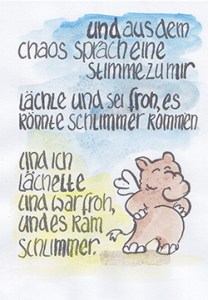 und aus dem
chaos sprach eine
stimme zu mir
lächle und sei froh, es
könnte schlimmer kommen.
und ich
lächelte
und war froh,
und es kam
schlimmer.